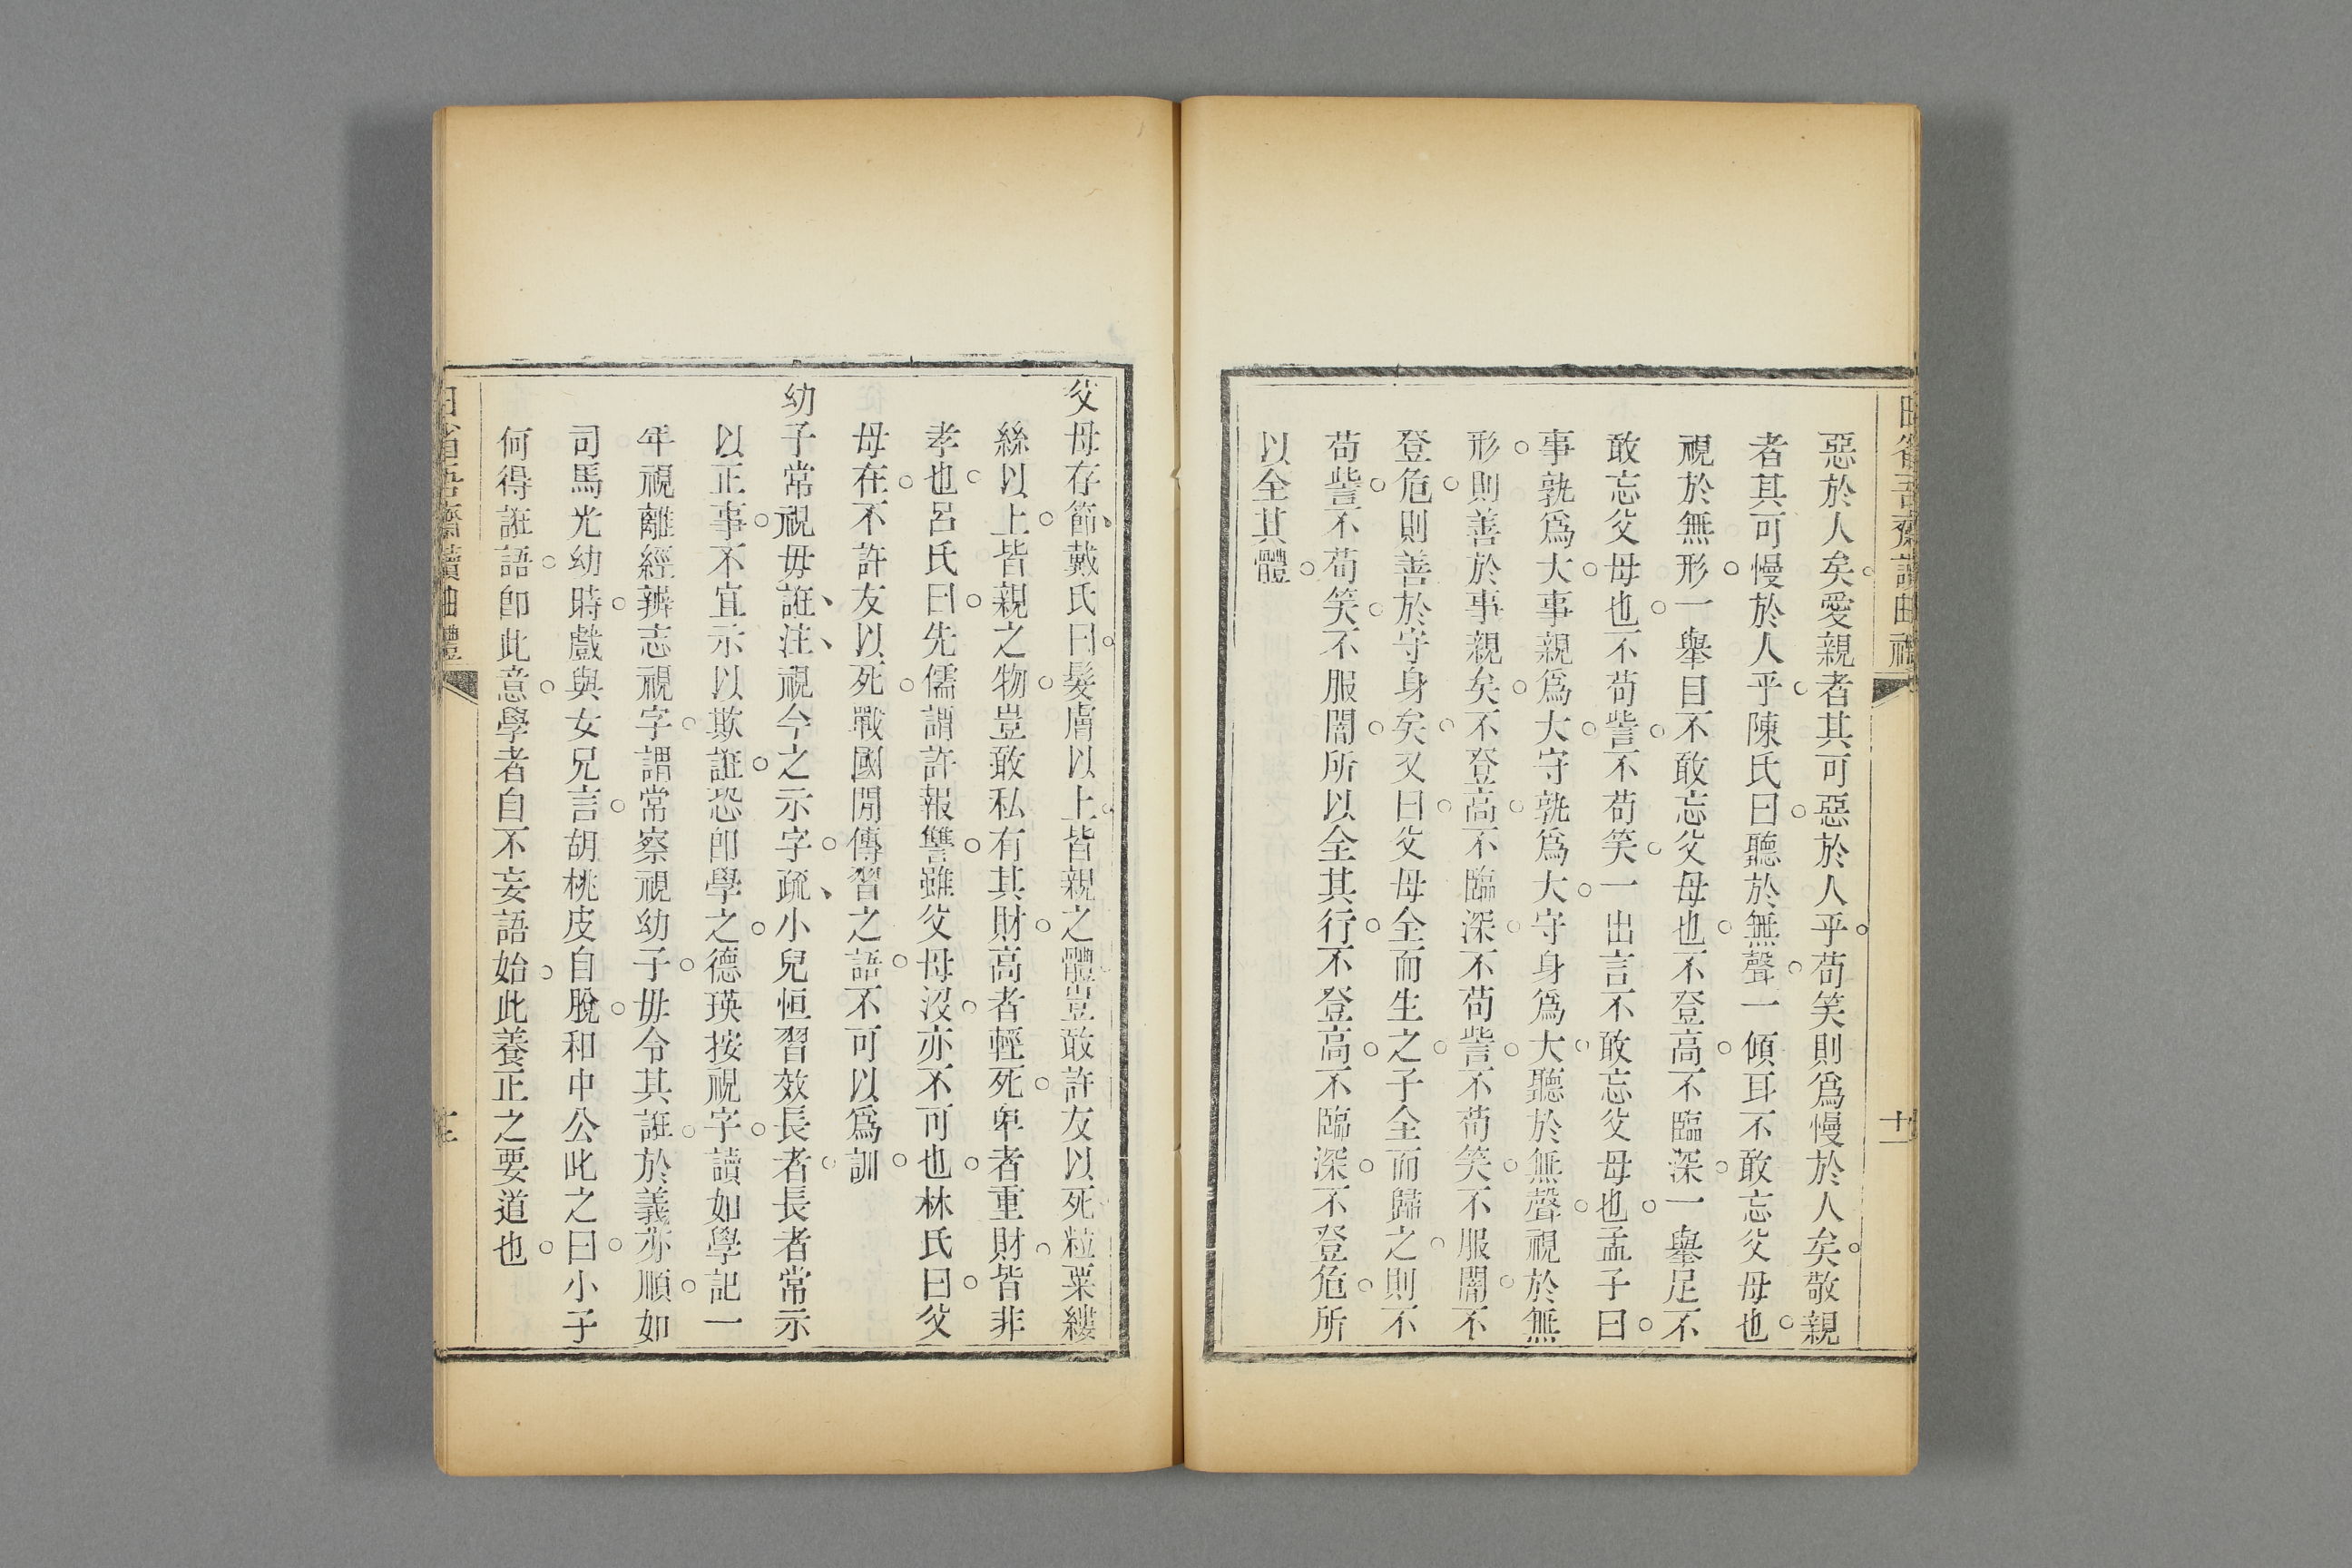 日省吾齋讀曲禮
十一
惡於人矣愛親者其可惡於人乎苟笑則爲慢於人矣敬親
者其可慢於人乎陳氏曰聽於無聲一傾耳不敢忘父母也
視於無形一舉目不敢忘父母也不登高不臨深一舉足不
敢忘父母也不苟訾不苟笑一出言不敢忘父母也孟子曰
事孰爲大事親爲大守孰爲大守身爲大聽於無聲視於無
形則善於事親矣不登高不臨深不苟訾不苟笑不服闇不
登危則善於守身矣又曰父母全而生之子全而歸之則不
苟訾不苟笑不服闇所以全其行不登高不臨深不登危所
以全其體
父母存節戴氏曰髮膚以上皆親之體豈敢許友以死粒粟縷
絲以上皆親之物豈敢私有其財高者輕死卑者重財皆非
孝也呂氏曰先儒謂許報讐雖父母沒亦不可也林氏曰父
母在不許友以死戰國閒傳習之語不可以爲訓
幼子常視毋誑注視今之示字疏小兒恒習效長者長者常示
以正事不宜示以欺誑恐卽學之德瑛按視字讀如學記一
年視離經辨志視字謂常察視幼子毋令其誑於義亦順如
司馬光幼時戲與女兄言胡桃皮自脫和中公叱之曰小子
何得誑語卽此意學者自不妄語始此養正之要道也
日省吾齋讀曲禮